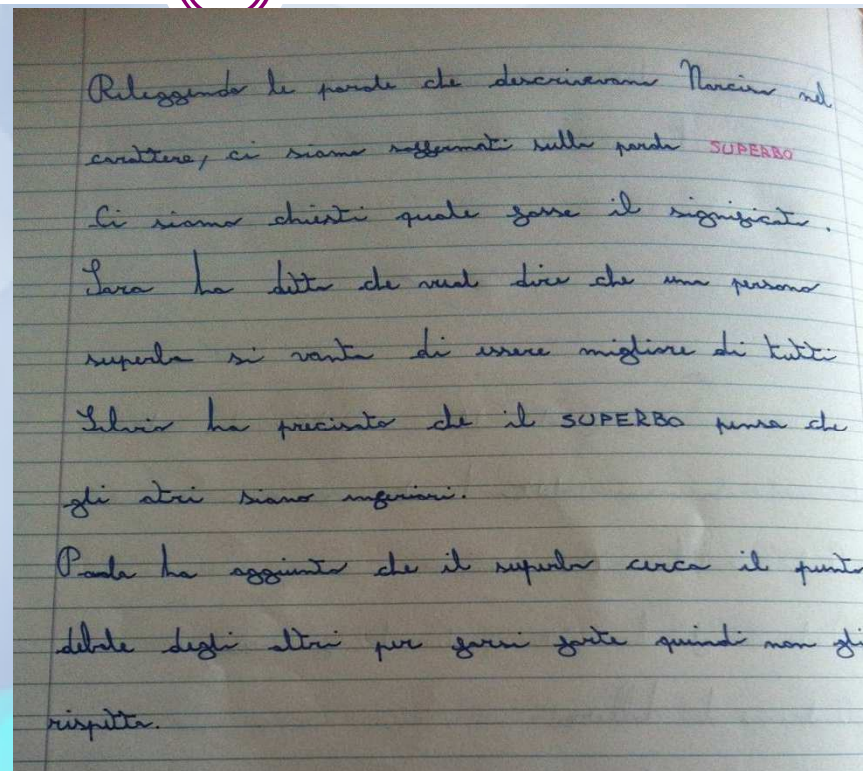 Rileggendo le parole che descrivevano Narciso nel
carattere, ci siamo soffermati sulla parola SUPERBO
Ci siamo chiesti quale fosse il significato.
Sara ha detto che vuol dire che una persona
superba si vanta di essere migliore di tutti
Silvia ha precisato che il SUPERBO pensa che
gli atri siano inferiori.
Paola ha aggiunto che il superbo cerca il punto
debole degli altri per farsi forte quindi non gli
rispetta.